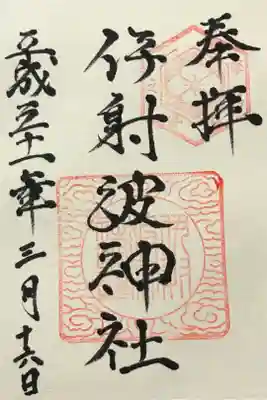 奉拝
伊射波神社
平成三十一年三月十六日